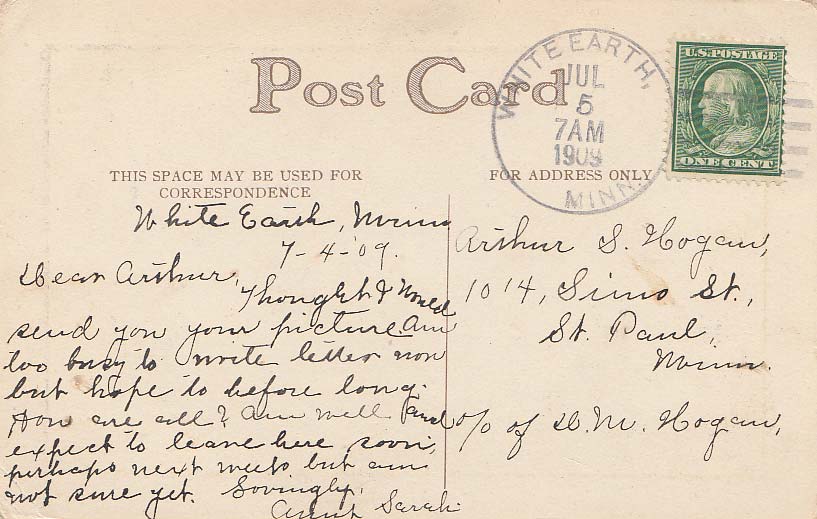 Post Card
WHITE EARTH,
JUL
5
7AM
1909
MINN.
U.S. POSTAGE
ONE CENT
THIS SPACE MAY BE USED FOR
CORRESPONDENCE
FOR ADDRESS ONLY
White Earth, Minn
7-4-'09.
Dear Arthur,
Thought I would
send you your picture. Am
too busy to write letter now
but hope to before long.
How are all? Am well and
expect to leave here soon,
perhaps next week but am
not sure yet. Lovingly,
Aunt Sarah
Arthur S. Hogan,
1014, Sims St.,
St. Paul,
Minn.
c/o of D. M. Hogan,